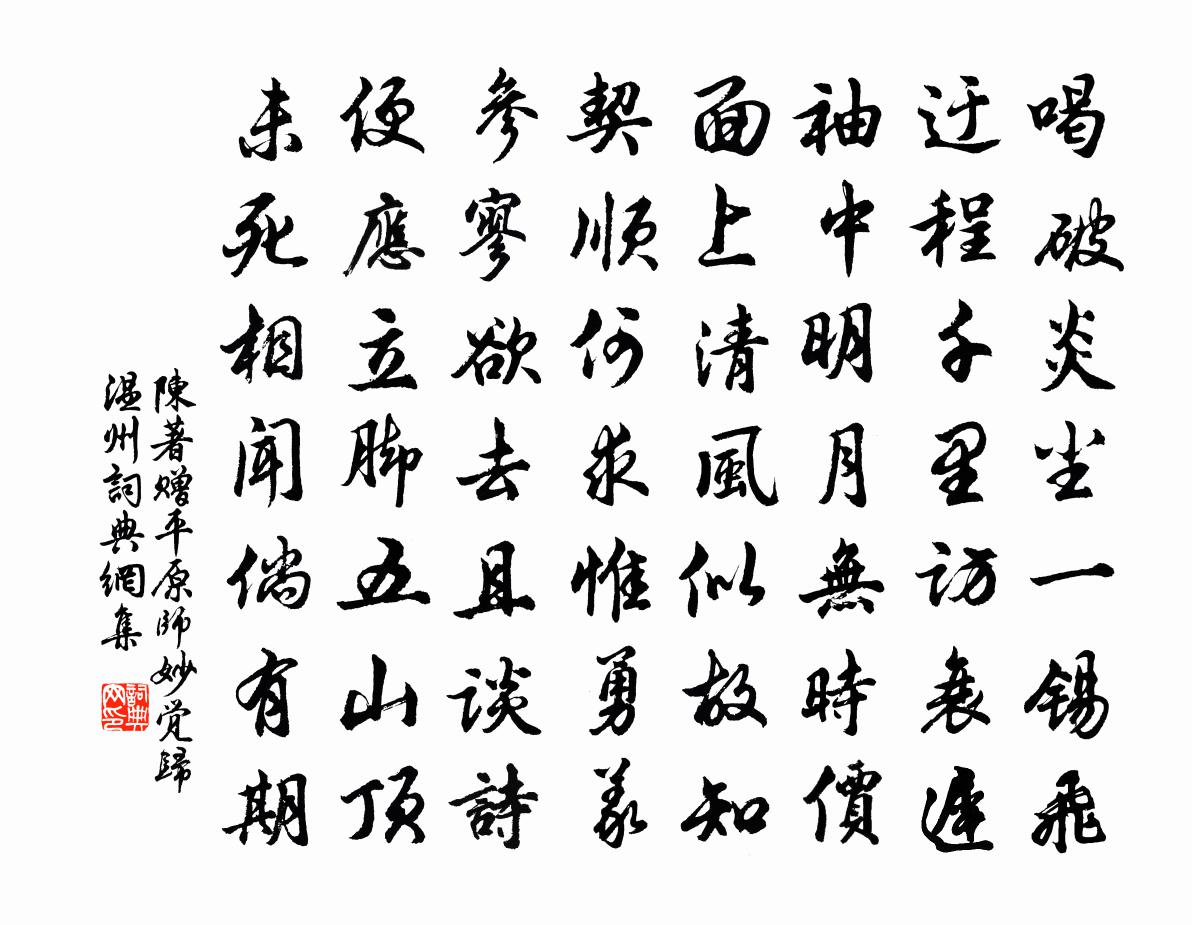 喝破炎尘一锡飛
迂程千里訪衰遲
袖中明月無時價
面上清風似故知
契順何求惟勇義
參寥欲去且談詩
便應立脚五山頂
未死相聞倘有期
陳著贈平原師妙觉歸
温州詞典網集
詞典网印